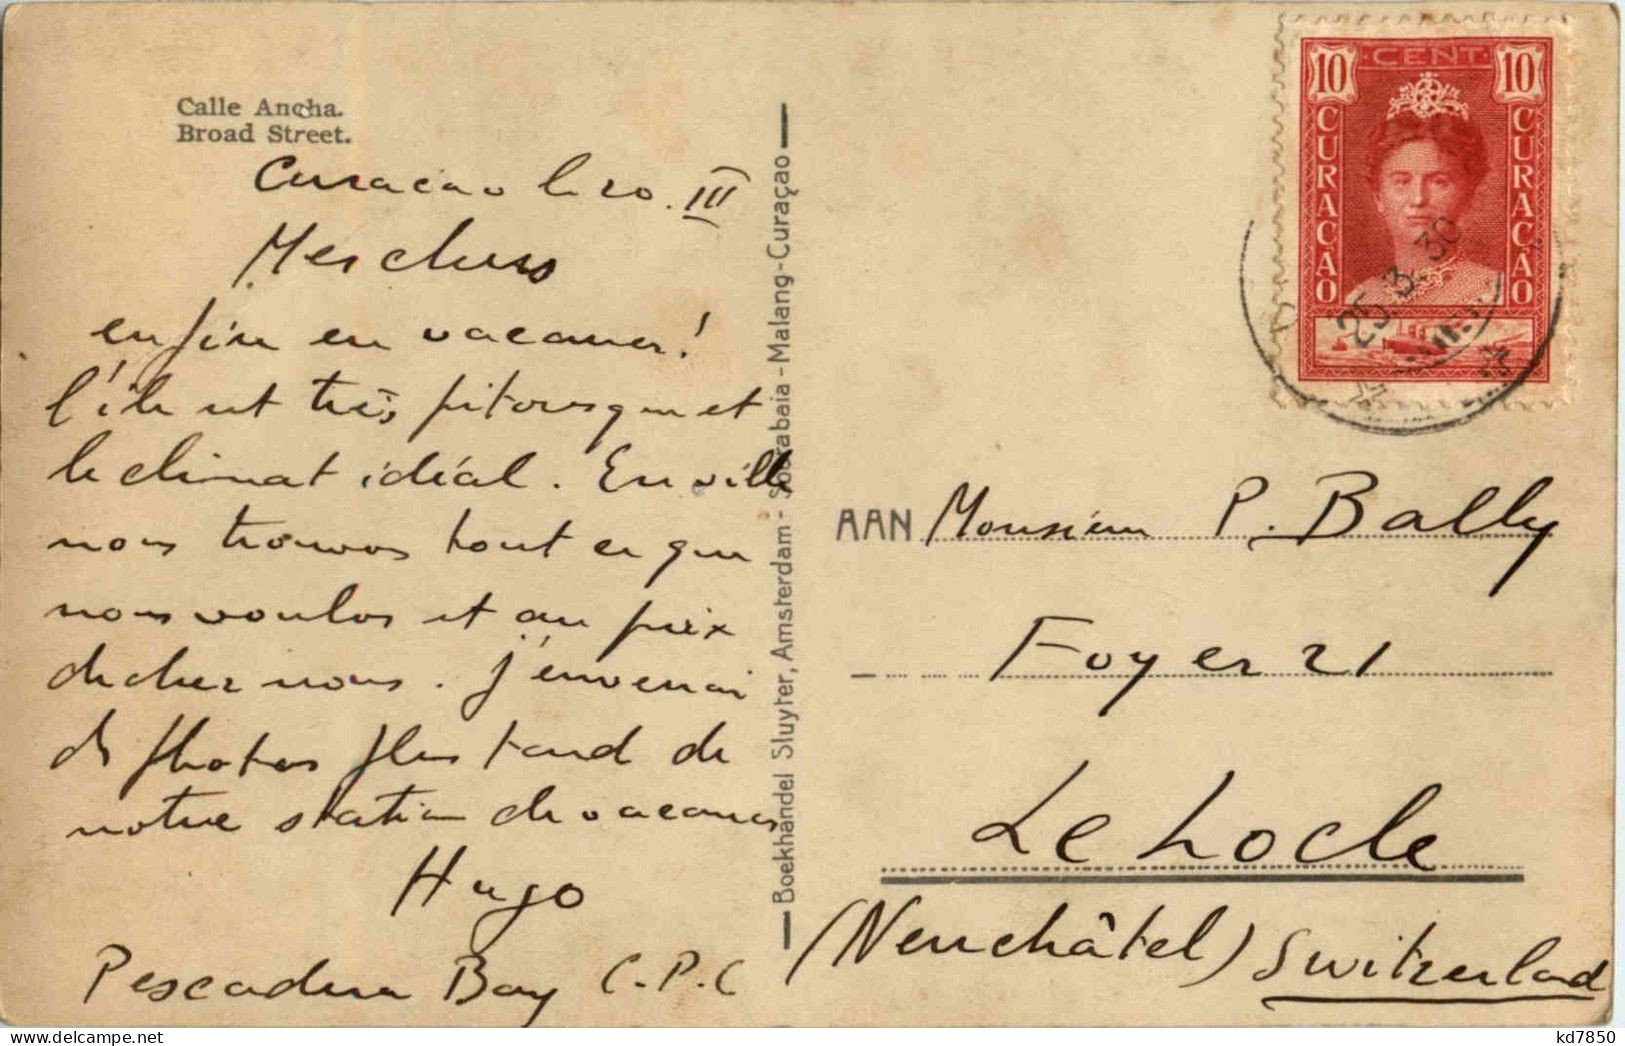 Calle Ancha.
Broad Street.
Curacao le 20. III
Mes chers
enfin en vacances!
l'île est très pitoresque et
le climat idéal. En ville
nous trouvons tout ce que
nous voulos et au prix
de chez nous. J'enverrai
des photos plus tard de
notre station de vacances
Hugo
Pescadera Bay C.P.C
Boekhandel Sluyter, Amsterdam - Soerabaia - Malang - Curaçao
10 CENT 10
CURAÇAO CURAÇAO
25.3.30
AAN Monsieur P. Bally
Foyer 21
Le Locle
(Neuchâtel) Switzerland
kd7850